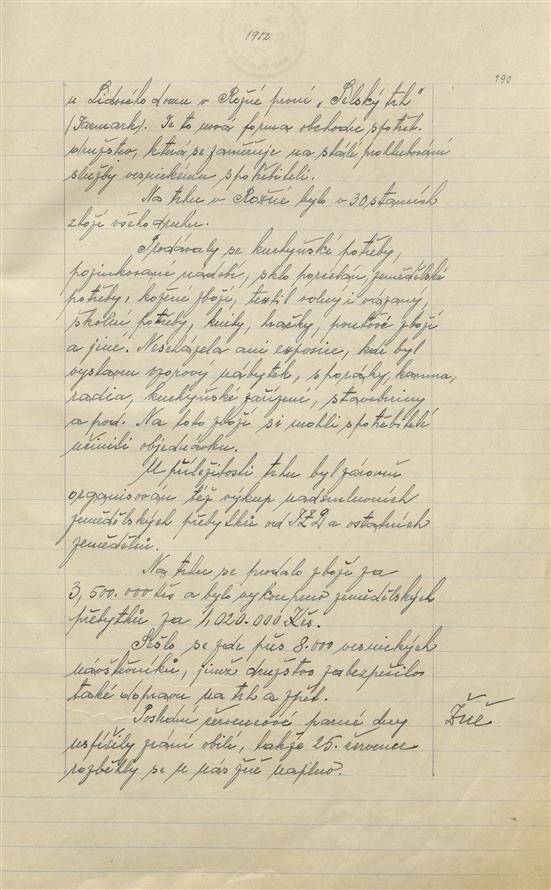 1952
190
u Lidového domu v Rožné první „Selský trh"
(Jarmark). Je to nová forma obchodu spotřeb.
družstev, která se zaměřuje na stálé prohlubování
služby vesnickému spotřebiteli.
Na trhu v Rožné bylo v 30 stanich
zboží všeho druhu.
Prodávaly se kuchyňské potřeby,
pozinkované nádobí, sklo porcelán, zemědělské
potřeby, kožené zboží, textil volný i vázaný,
školní potřeby, knihy, hračky, pouťové zboží
a jiné. Nescházela ani exposice, kde byl
vystaven vzorový nábytek, sporáky, kamna,
radia, kuchyňské zařízení, stavebniny
a pod. Na toto zboží si mohli spotřebitelé
učiniti objednávku.
U příležitosti trhu byl zároveň
organisován též výkup nadsmluvních
zemědělských přebytků od JZD a ostatních
zemědělců.
Na trhu se prodalo zboží za
3,500.000 Kčs a bylo vykoupeno zemědělských
přebytků za 1,020.000 Kčs.
Sešlo se zde přes 8.000 vesnických
návštěvníků, jimž družstvo zabezpečilo
také dopravu na trh a zpět.
Poslední červencové parné dny Žně
uspíšily zrání obilí, takže 25. července
rozběhly se u nás žně naplno.